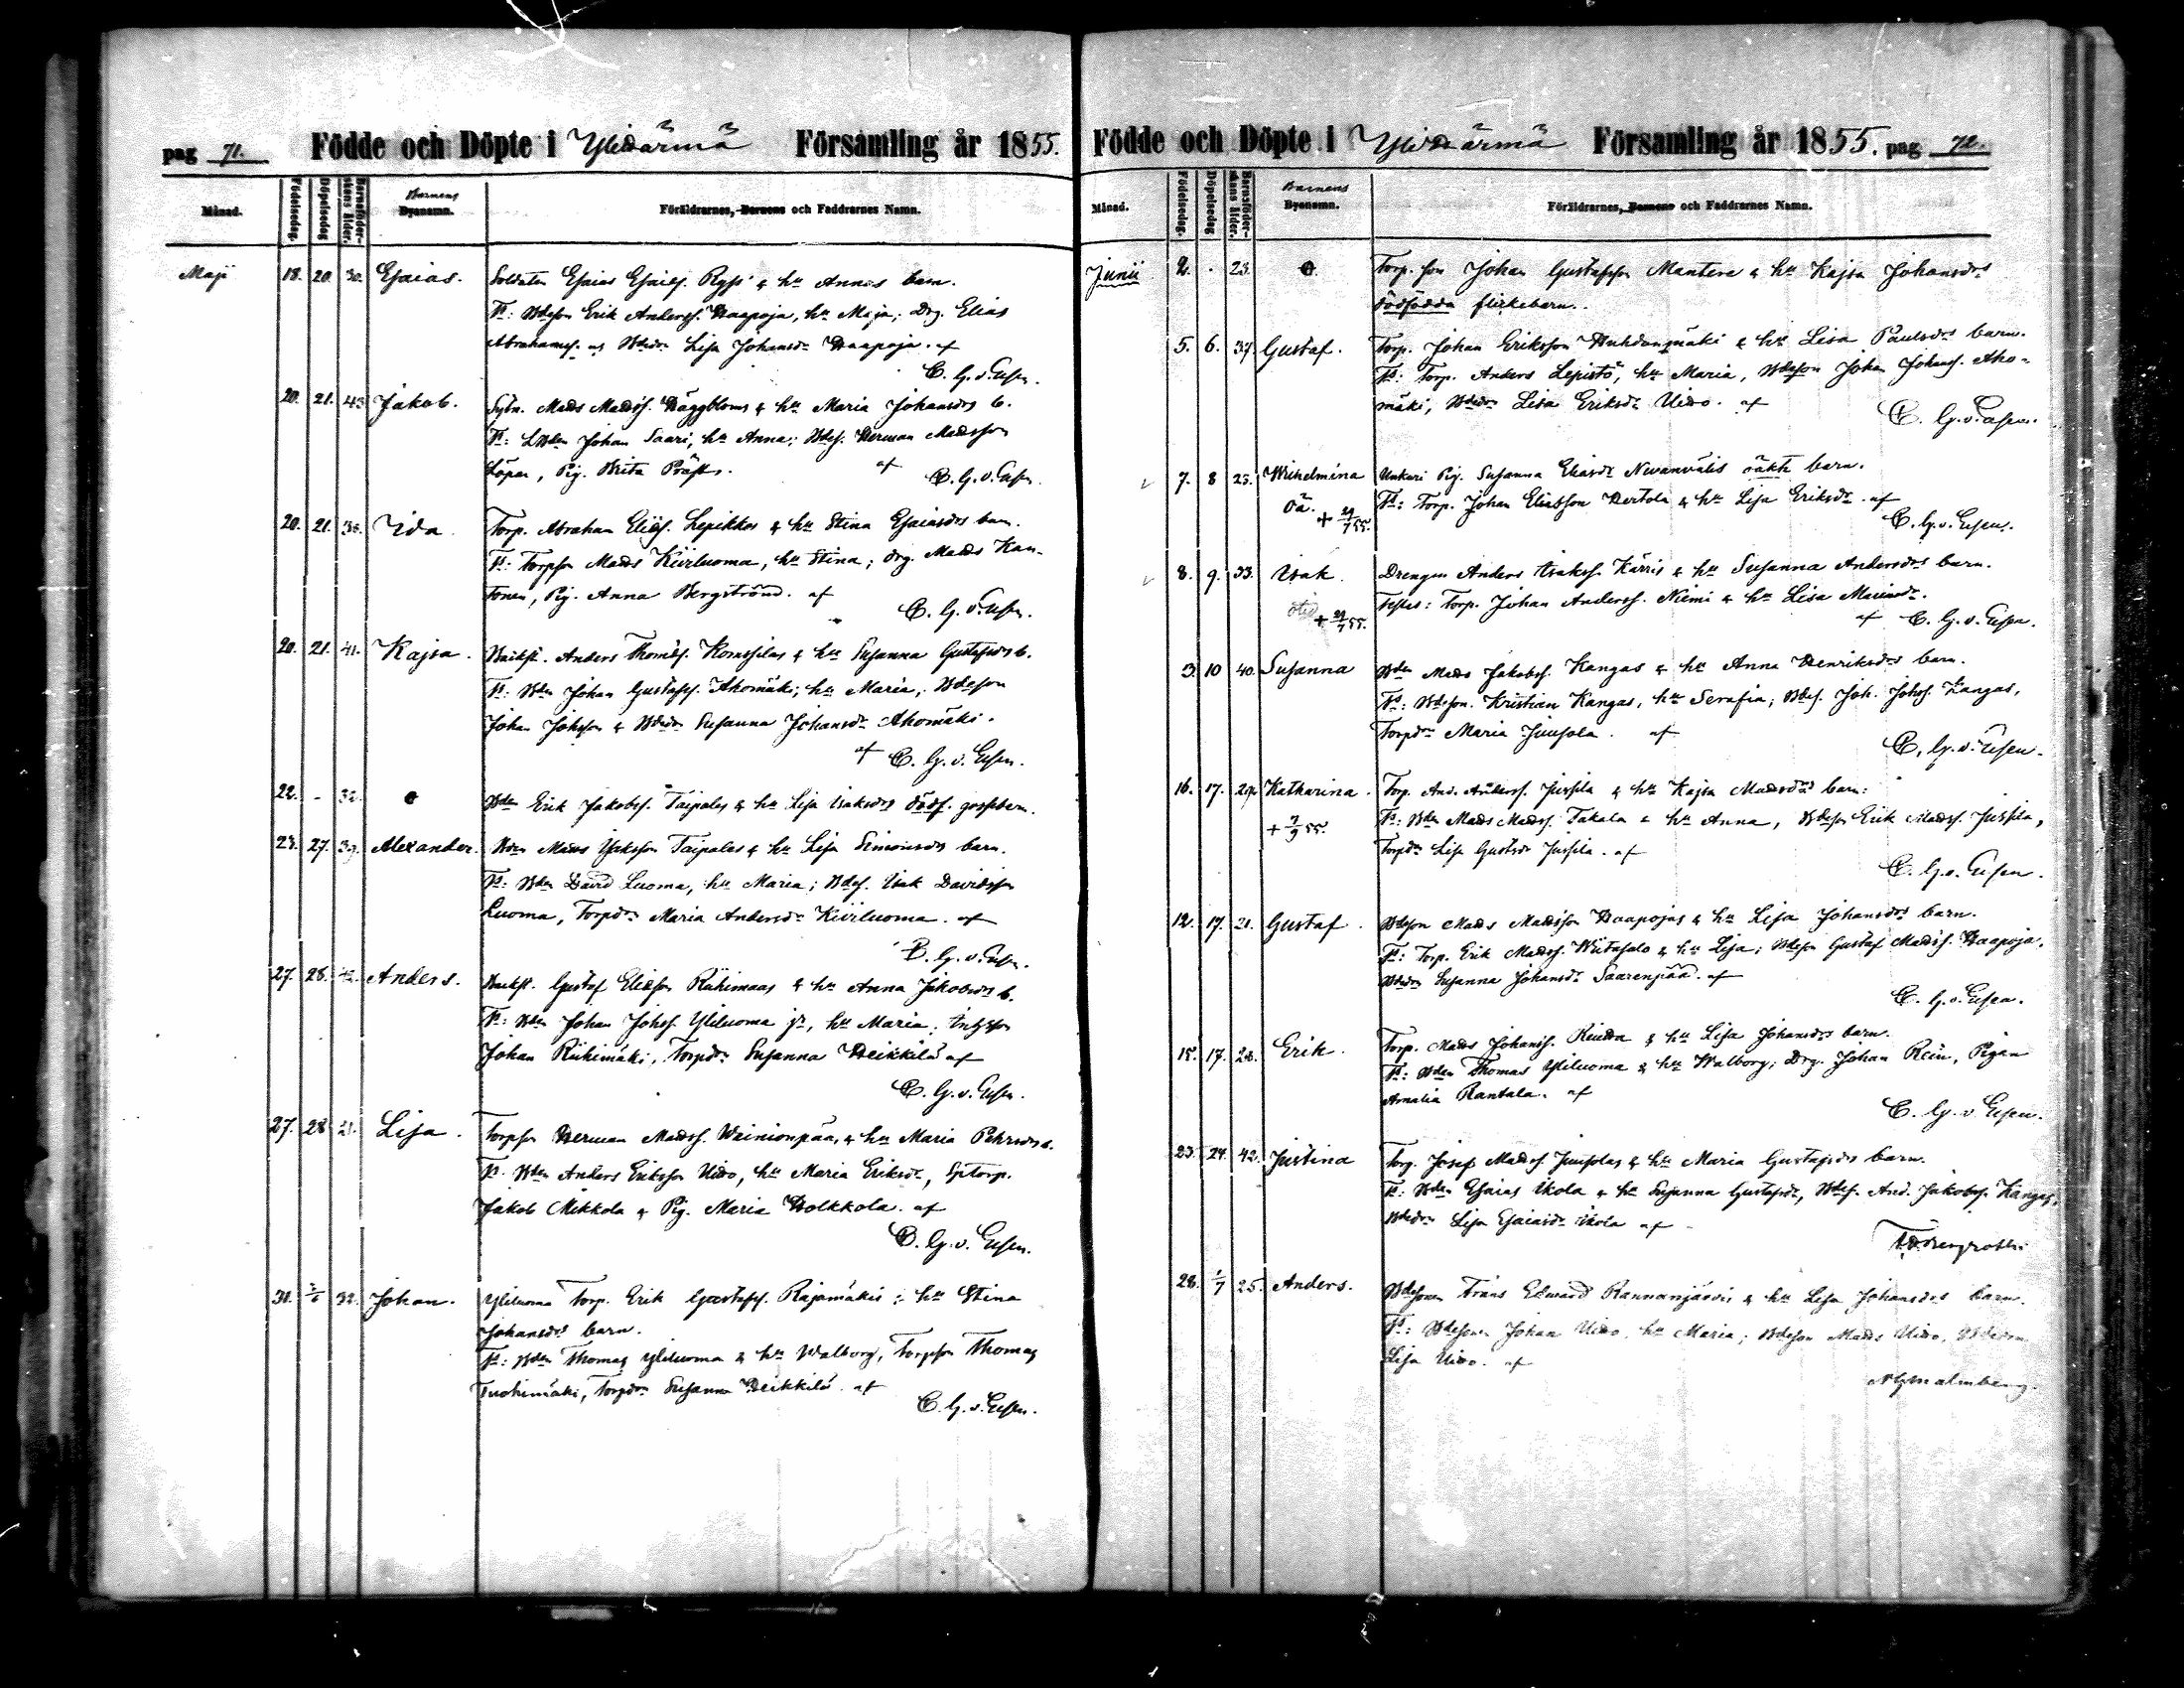 pag 71. Födde och Döpte i Ylihärmä Församling år 1855.
Månad. Födelsedag. Döpelsedag Barnaföderskans ålder. Barnens Byanamn. Föräldrarnes, Barnens och Faddrarnes Namn.
Maji 18. 20. 30. Esaias. Soldaten Esaias Esaiss. Ryss & hu Annas barn.
Fs: Bdeson Erik Anderss. Haapoja, hu Maja; Drg. Elias
Abrahamss. och Bdedr Lisa Johansdr Haapoja. af
C. G. v. Essen.
20. 21. 43 Jakob. Sytn. Mats Matss. Häggbloms & hu Maria Johansdrs b.
Fs: LBden Johan Saari, hu Anna; Bdes. Herman Madsson
Löpar, Pig. Brita Präst. af C. G. v. Essen.
20. 21. 36. Ida. Torp. Abraham Eliæs. Lepikkos & hu Stina Esaiasdrs barn.
Fs: Torpson Mads Kiviluoma, hu Stina; drg. Mads Kan-
tonen, Pig. Anna Bergström. af
C. G. v. Essen.
20. 21. 41. Kajsa. Backst. Anders Thomæs. Komsilas & hu Susanna Gustafsdrs b.
Fs: Bden Johan Gustafss. Ahomäki; hu Maria; Bdeson
Johan Johsson & Bdedr Susanna Johansdr Ahomäki.
af C. G. v. Essen.
22. - 32. Bden Erik Jakobss. Taipales & hu Lisa Isaksdrs dödf. gossebarn.
23. 27. 39. Alexander. Bden Mads Isaksson Taipales & hu Lisa Simonsdrs barn.
Fs: Bden David Luoma, hu Maria; Bdes. Isak Davidsson
Luoma, Torpdr Maria Andersdr Kiviluoma. af
C. G. v. Essen.
27. 28. Anders. Backst. Gustaf Eliæson Riihimaas & hu Anna Jakobsdrs b.
Fs: Bden Johan Johss. Yliluoma jr, hu Maria; Inhyson
Johan Riihimäki, Torpdr Susanna Heikkilä af
C. G. v. Essen.
27. 28 21. Lisa. Torpson Herman Madss. Wainionpää, & hu Maria Pehrsdrs b.
Fs. Bden Anders Eriksson Uivo, hu Maria Eriksdr, Sptorp.
Jakob Mikkola & Pig. Maria Holkkola. af
C. G. v. Essen.
31. 2/6 32. Johan. Yliluoma Torp. Erik Gustafss. Rajamäkis & hu Stina
Johansdrs barn.
Fs: Bden Thomas Yliluoma & hu Walborg, Torpson Thomas
Tuohimäki, Torpdr Susanna Heikkilä. af
C. G. v. Essen.
Födde och Döpte i Ylihärmä Församling år 1855. pag 72.
Månad. Födelsedag. Döpelsedag Barnaföderskans ålder. Barnens Byanamn. Föräldrarnes, Barnens och Faddrarnes Namn.
Junii 2. . 23. Torp. son Johan Gustafsson Mantere & hu Kajsa Johansdrs
dödfödda flickebarn.
5. 6. 37. Gustaf. Torp. Johan Eriksson Huhdanmäki & hu Lisa Paulsdrs barn.
Fs: Torp. Anders Lepistö, hu Maria, Bdeson Johan Johanss. Aho-
mäki, Bdedr Lisa Eriksdr Uivo. af C. G. v. Essen.
7. 8 23. Wilhelmina Unkari Pig. Susanna Eliasdr Nevanvälis oäkta barn.
oä. + 29/7 55. Fs: Torp. Johan Eliasson Hertola & hu Lisa Eriksdr. af
C. G. v. Essen.
8. 9. 33. Isak. Drengen Anders Isakss. Kärris & hu Susanna Andersdrs barn.
+ 29/7 55. Testes: Torp. Johan Anderss. Niemi & hu Lisa Mariasdr.
af C. G. v. Essen.
3. 10 40. Susanna Bden Mads Jakobss. Kangas & hu Anna Henriksdrs barn.
Fs: Bdeson. Kristian Kangas, hu Serafia; Bdes. Joh. Johss. Kangas,
Torpdr Maria Juusola. af
C. G. v. Essen.
16. 17. 29. Katharina. Torp. And. Anderss. Jussila & hu Kajsa Madsdrs barn.
+ 7/9 55. Fs: Bden Mads Madss. Takala & hu Anna, Bdeson Erik Madss. Jussila,
Torpdr Lisa Gustsdr Jussila. af
C. G. v. Essen.
12. 17. 21. Gustaf. Bdeson Mads Madsson Haapojas & hu Lisa Johansdrs barn.
Fs: Torp. Erik Madss. Wiitasalo & hu Lisa; Bdeson Gustaf Madss. Haapoja,
Bdedr Susanna Johansdr Saarenpää. af
C. G. v. Essen.
15. 17. 28. Erik. Torp. Mads Johanss. & hu Lisa Johansdrs barn.
Fs: Bden Thomas Yliluoma & hu Walborg; Drg. Johan Rein, Pigan
Amalia Rantala. af
C. G. v. Essen.
23. 24. 42. Justina Torp. Josef Madss. Juusolas & hu Maria Gustafsdrs barn.
Fs: Bden Esaias Ikola & hu Susanna Gustafsdr, Bdes. And. Jakobss. Kangas,
Bdedr Lisa Esaiasdr Ikola af
28. 1/7 25. Anders. Bdesonen Frans Edward Rannanjärvis & hu Lisa Johansdrs barn.
Fs: Bdesonen Johan Uivo, hu Maria; Bdeson Mads Uivo, Bdedren
Lisa Uivo. af
Malmberg.